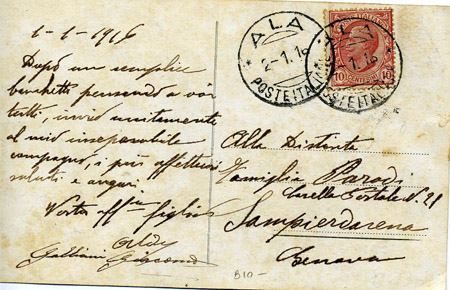 1-1-1916
Dopo un semplice
banchetto pensando a voi
tutti, invio unitamente
al mio inseparabile
compagno, i più affettuosi
saluti e auguri
Vostro aff.mo figlio
Aldo
Galbiani Giacomo
ALA
2-1.16
POSTE ITAL
ALA
1.16
POSTE ITAL
POSTE ITALIANE
10 CENTESIMI 10
Alla Distinta
Famiglia Parodi
Casella Postale N. 21
Sampierdarena
Genova
B10-